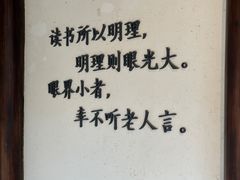 读书所以明理，
明理则眼光大。
眼界小者，
幸不听老人言。